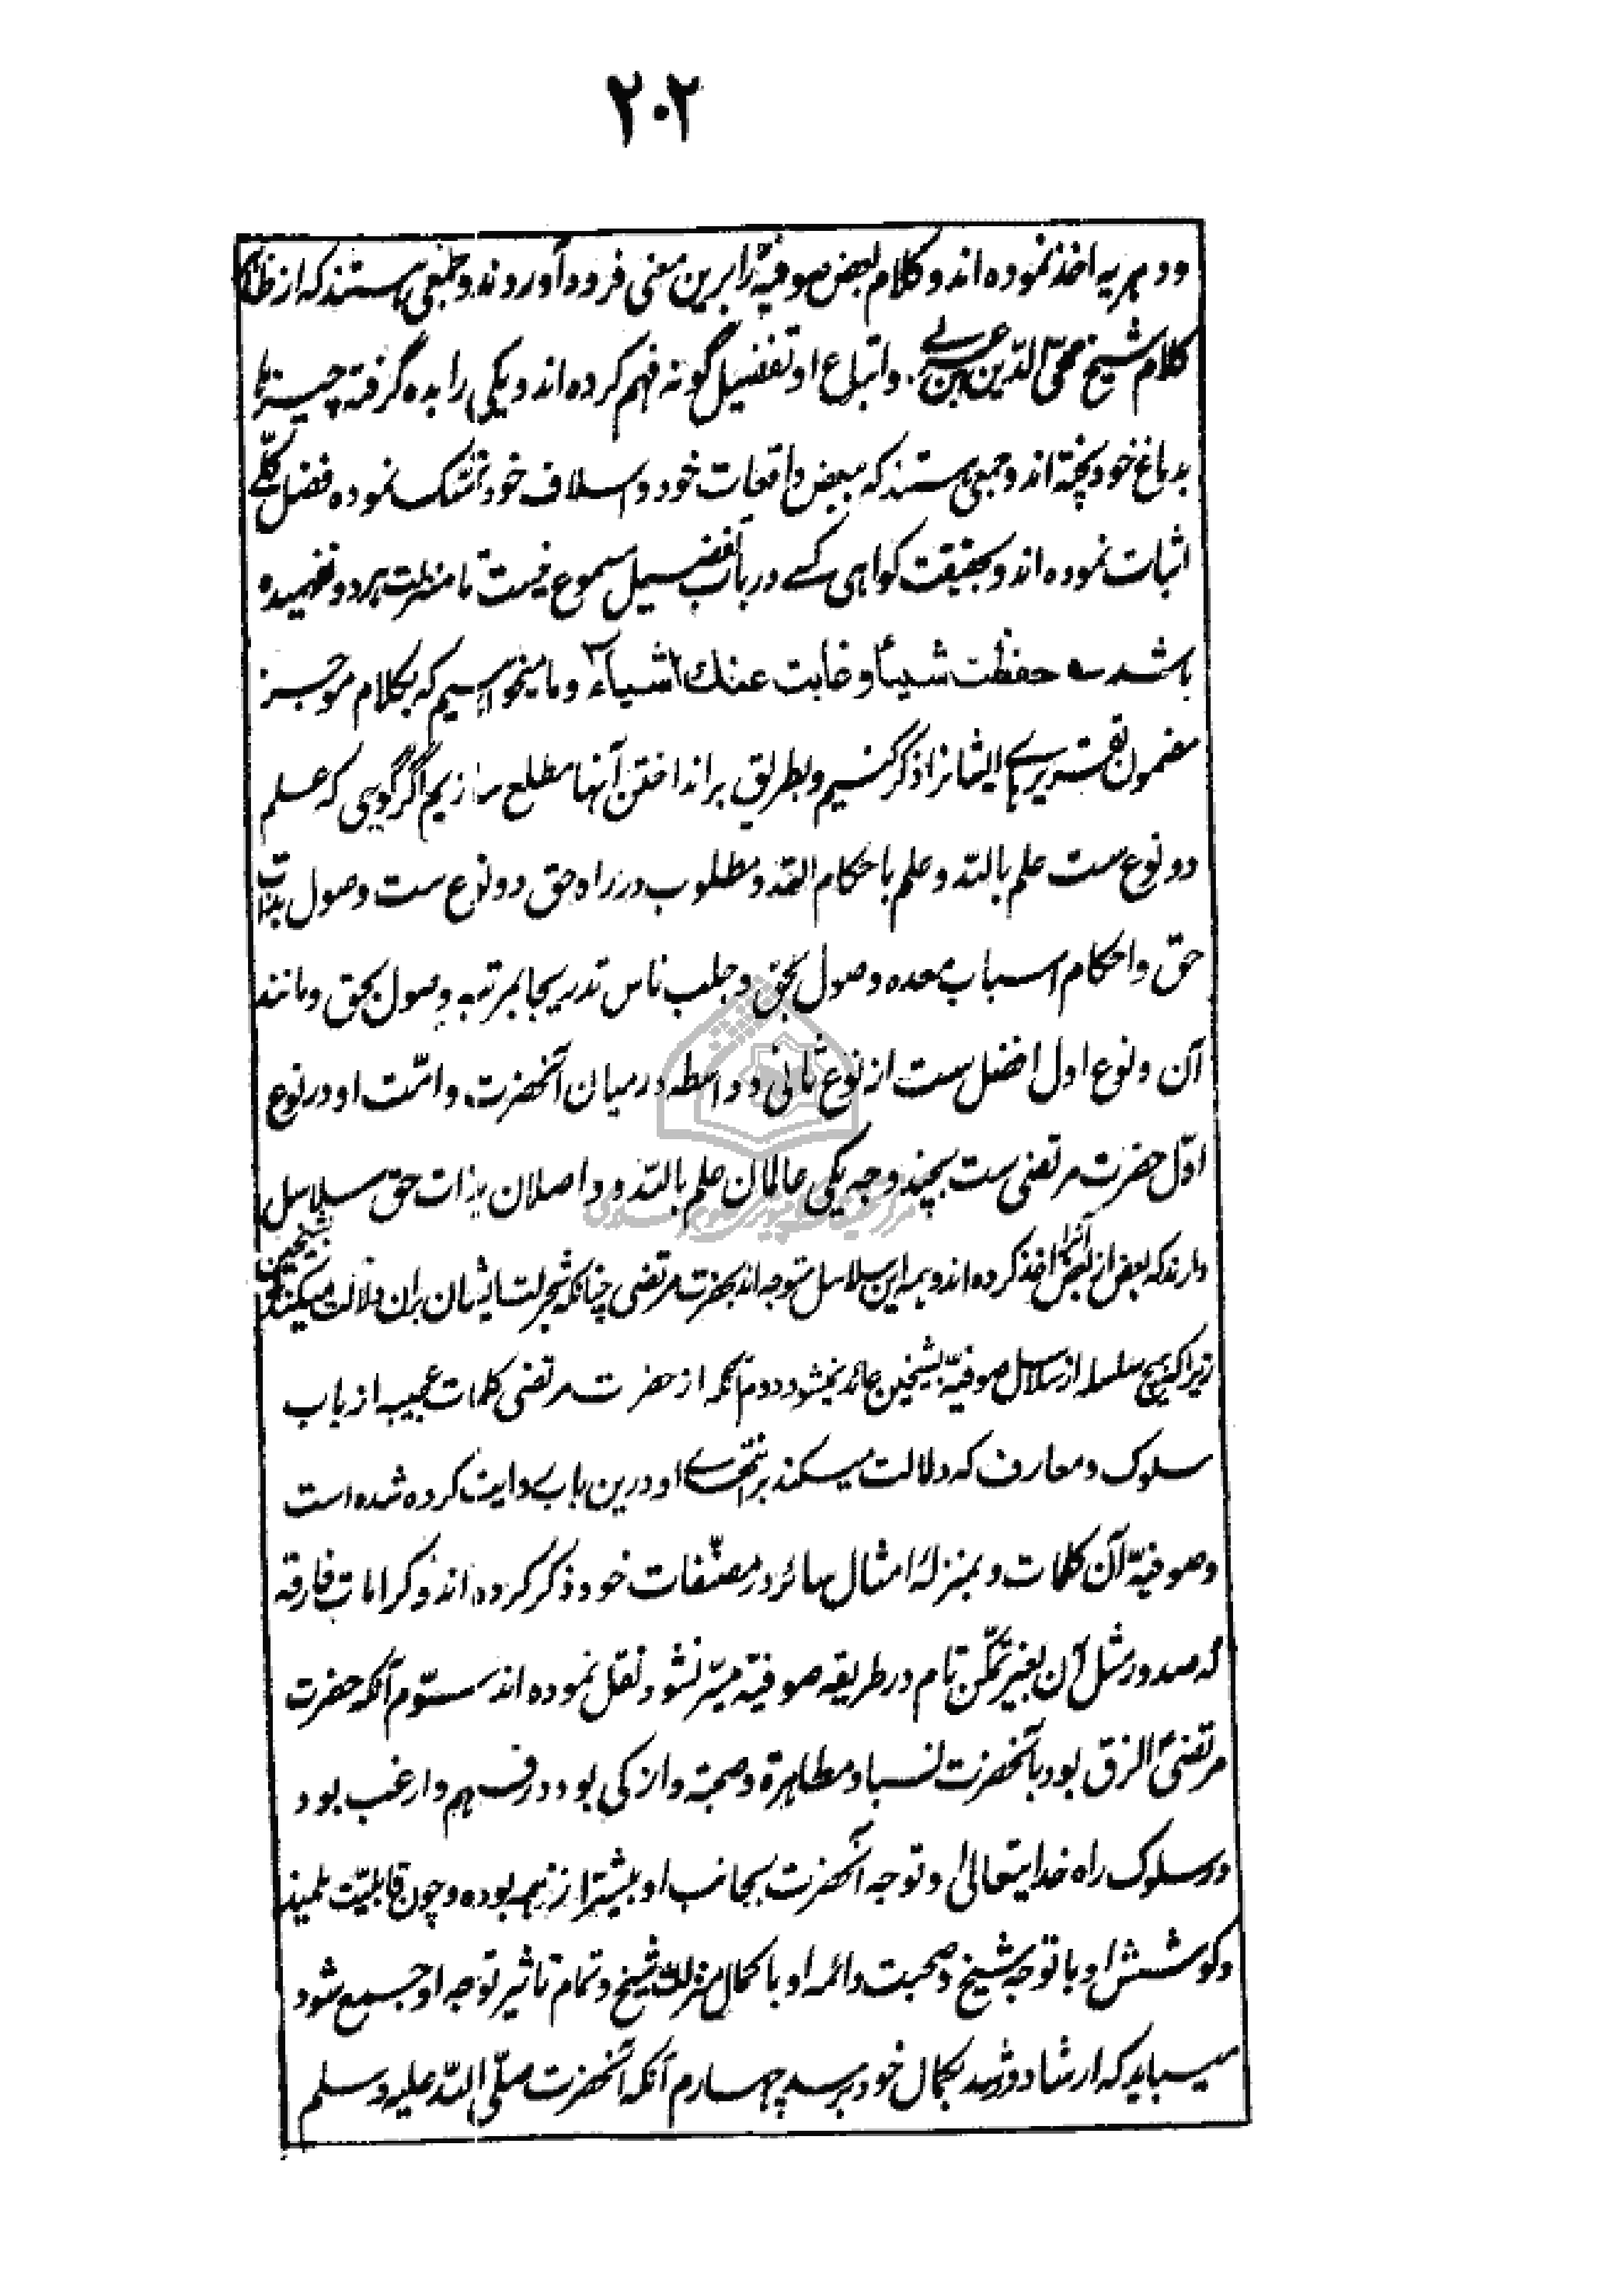 ۲۰۲
ودهریه اخذ نموده اند و کلام بعض صوفیهٔ را برین معنی فرود آوردند و جمعی هستند که از ظاهر
کلام شیخ محی الدّین ابن عربی و اتباع او تفضیل گونه فهم کرده اند و یکی را بده گرفته چیزها
بدماغ خود پخته اند و جمعی هستند که ببعض واقعات خود و اسلاف خود تمسّک نموده فضل کلّے
اثبات نموده اند و بحقیقت گواهی کسے در باب تفضیل مسموع نیست تا منزلت هر دو نفهمیده
باشد ـه حفظت شیئا و غابت عنك اشیاء و ما میخواهیم که بکلام موجز
مضمون تقریر ہاے ایشانرا ذکر کنیم و بطریق بر انداختن آنها مطلع سازیم اگر گوئی که علم
دو نوع ست علم باللّه و علم باحکام اللّه و مطلوب در راه حق دو نوع ست وصول بذات
حق و احکام اسباب معده وصول بحق و جلب ناس تدریجا بمرتبه وصول بحق و مانند
آن و نوع اول افضل ست از نوع ثانی و واسطه درمیان آنحضرت و امّت او در نوع
اوّل حضرت مرتضی ست بچند وجه یکی عالمان علم باللّه و واصلان بذات حق سلاسل
دارند که بعض از بعض آنرا اخذ کرده اند و همه این سلاسل متوجه اند بحضرت مرتضی چنانکه شجرات ایشان بران دلالت میکند نه بشیخین
زیرا که هیچ سلسله از سلاسل صوفیّه بشیخین عائد نمیشود دوم آنکه از حضرت مرتضی کلمات عجیبه از باب
سلوک و معارف که دلالت میکند بر تبحّرے او درین باب روایت کرده شده است
و صوفیّه آن کلمات و بمنزلهٔ امثال سائره در مصنّفات خود ذکر کرده اند و کرامات خارقه
که صدور مثل آن بغیر تمکّن تام در طریقه صوفیّه میسّر نشود نقل نموده اند سوّم آنکه حضرت
مرتضیٰ الزق بود بآنحضرت نسبا و مطاهرة و صحبة و ازکی بود در فهم و ارغب بود
در سلوک راه خدایتعالیٰ و توجه آنحضرت بجانب او بیشتر از همه بوده و چون قابلیّت تلمیذ
و کوشش او با توجه شیخ و صحبت دائمه او با کمال منزلت شیخ و تمام تاثیر توجه او جمع شود
میباید که ارشاد و رشد بکمال خود برسد چهارم آنکه آنحضرت صلّی اللّه علیه و سلم